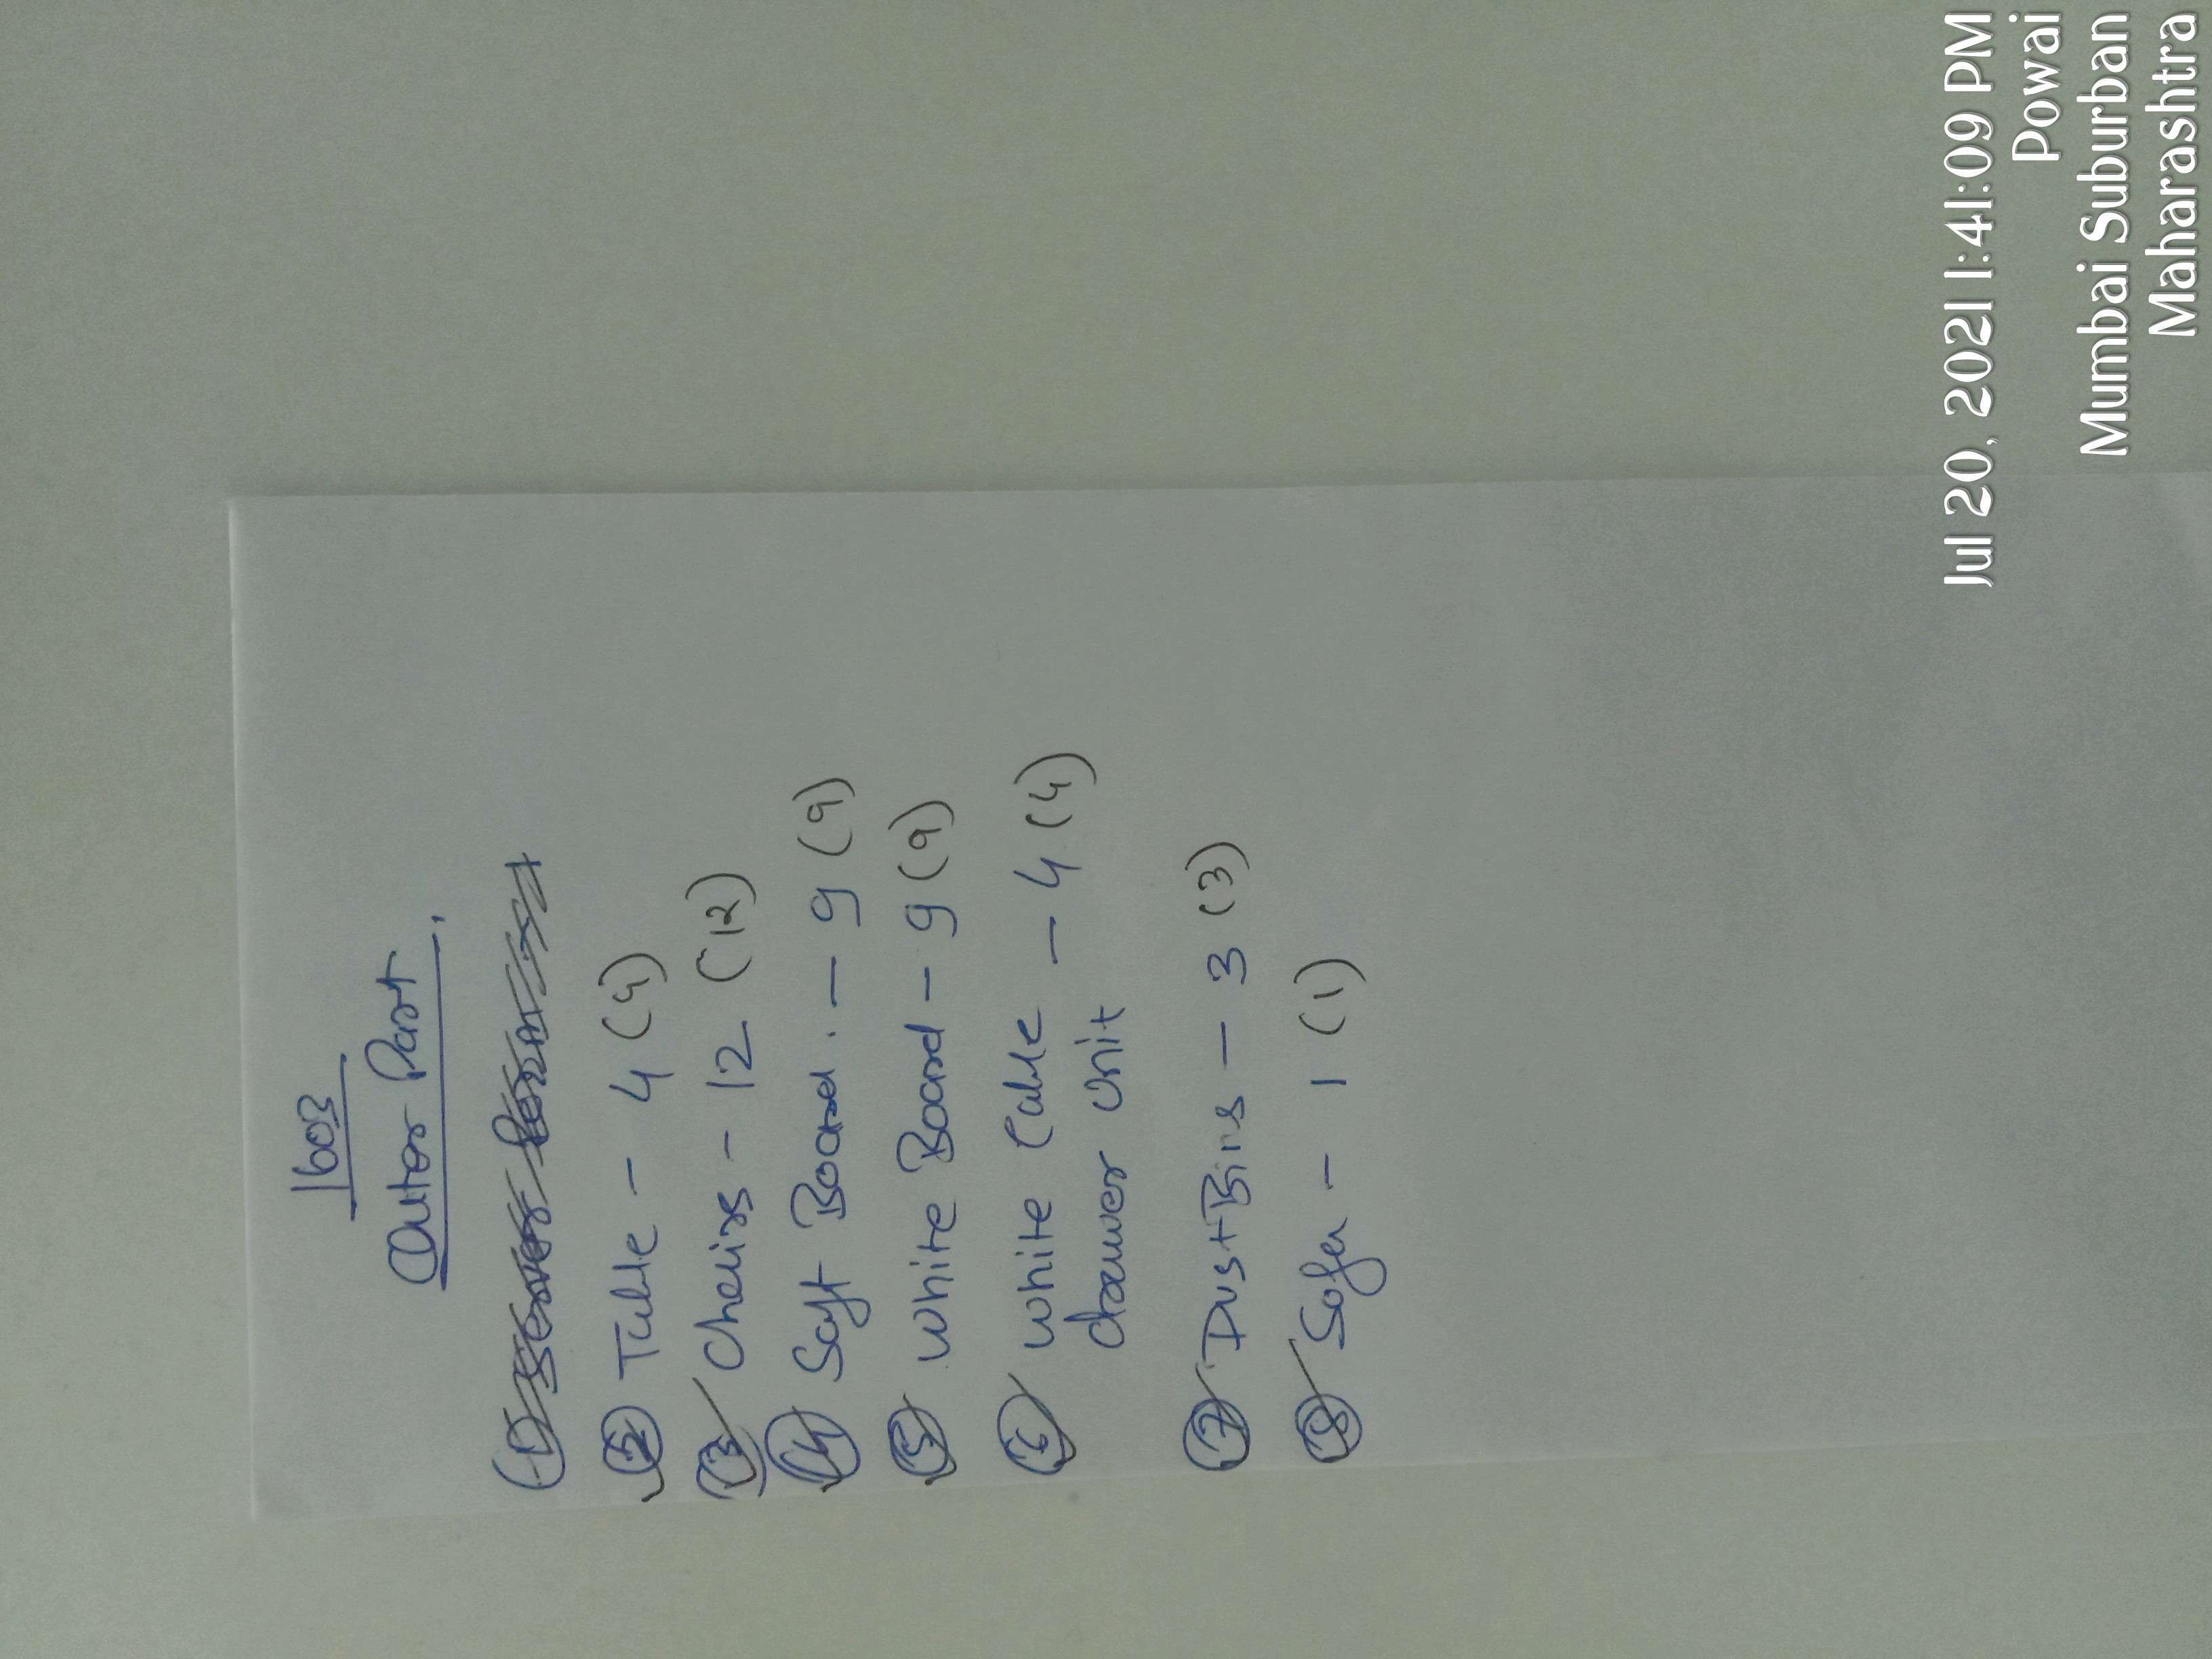 1603
Outer Part.
② Table - 4 (4)
③ Chairs - 12 (12)
④ Soft Board. - 9 (9)
⑤ White Board - 9 (9)
⑥ White Table - 4 (4)
drawer unit
⑦ DustBins - 3 (3)
⑧ Sofa - 1 (1)
Jul 20, 2021 1:41:09 PM
Powai
Mumbai Suburban
Maharashtra